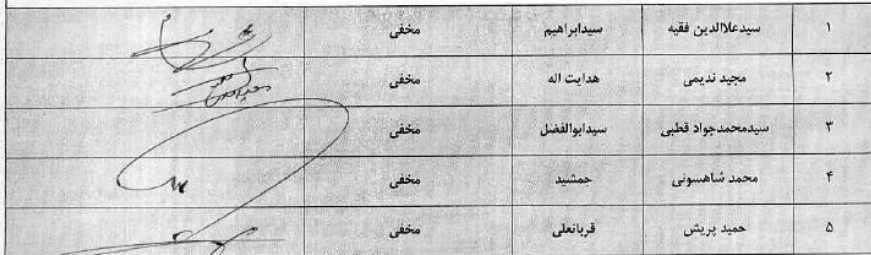 ۱ سیدعلاالدین فقیه سیدابراهیم مخفی
۲ مجید ندیمی هدایت اله مخفی
۳ سیدمحمدجواد قطبی سیدابوالفضل مخفی
۴ محمد شاهسونی جمشید مخفی
۵ حمید پریش قربانعلی مخفی